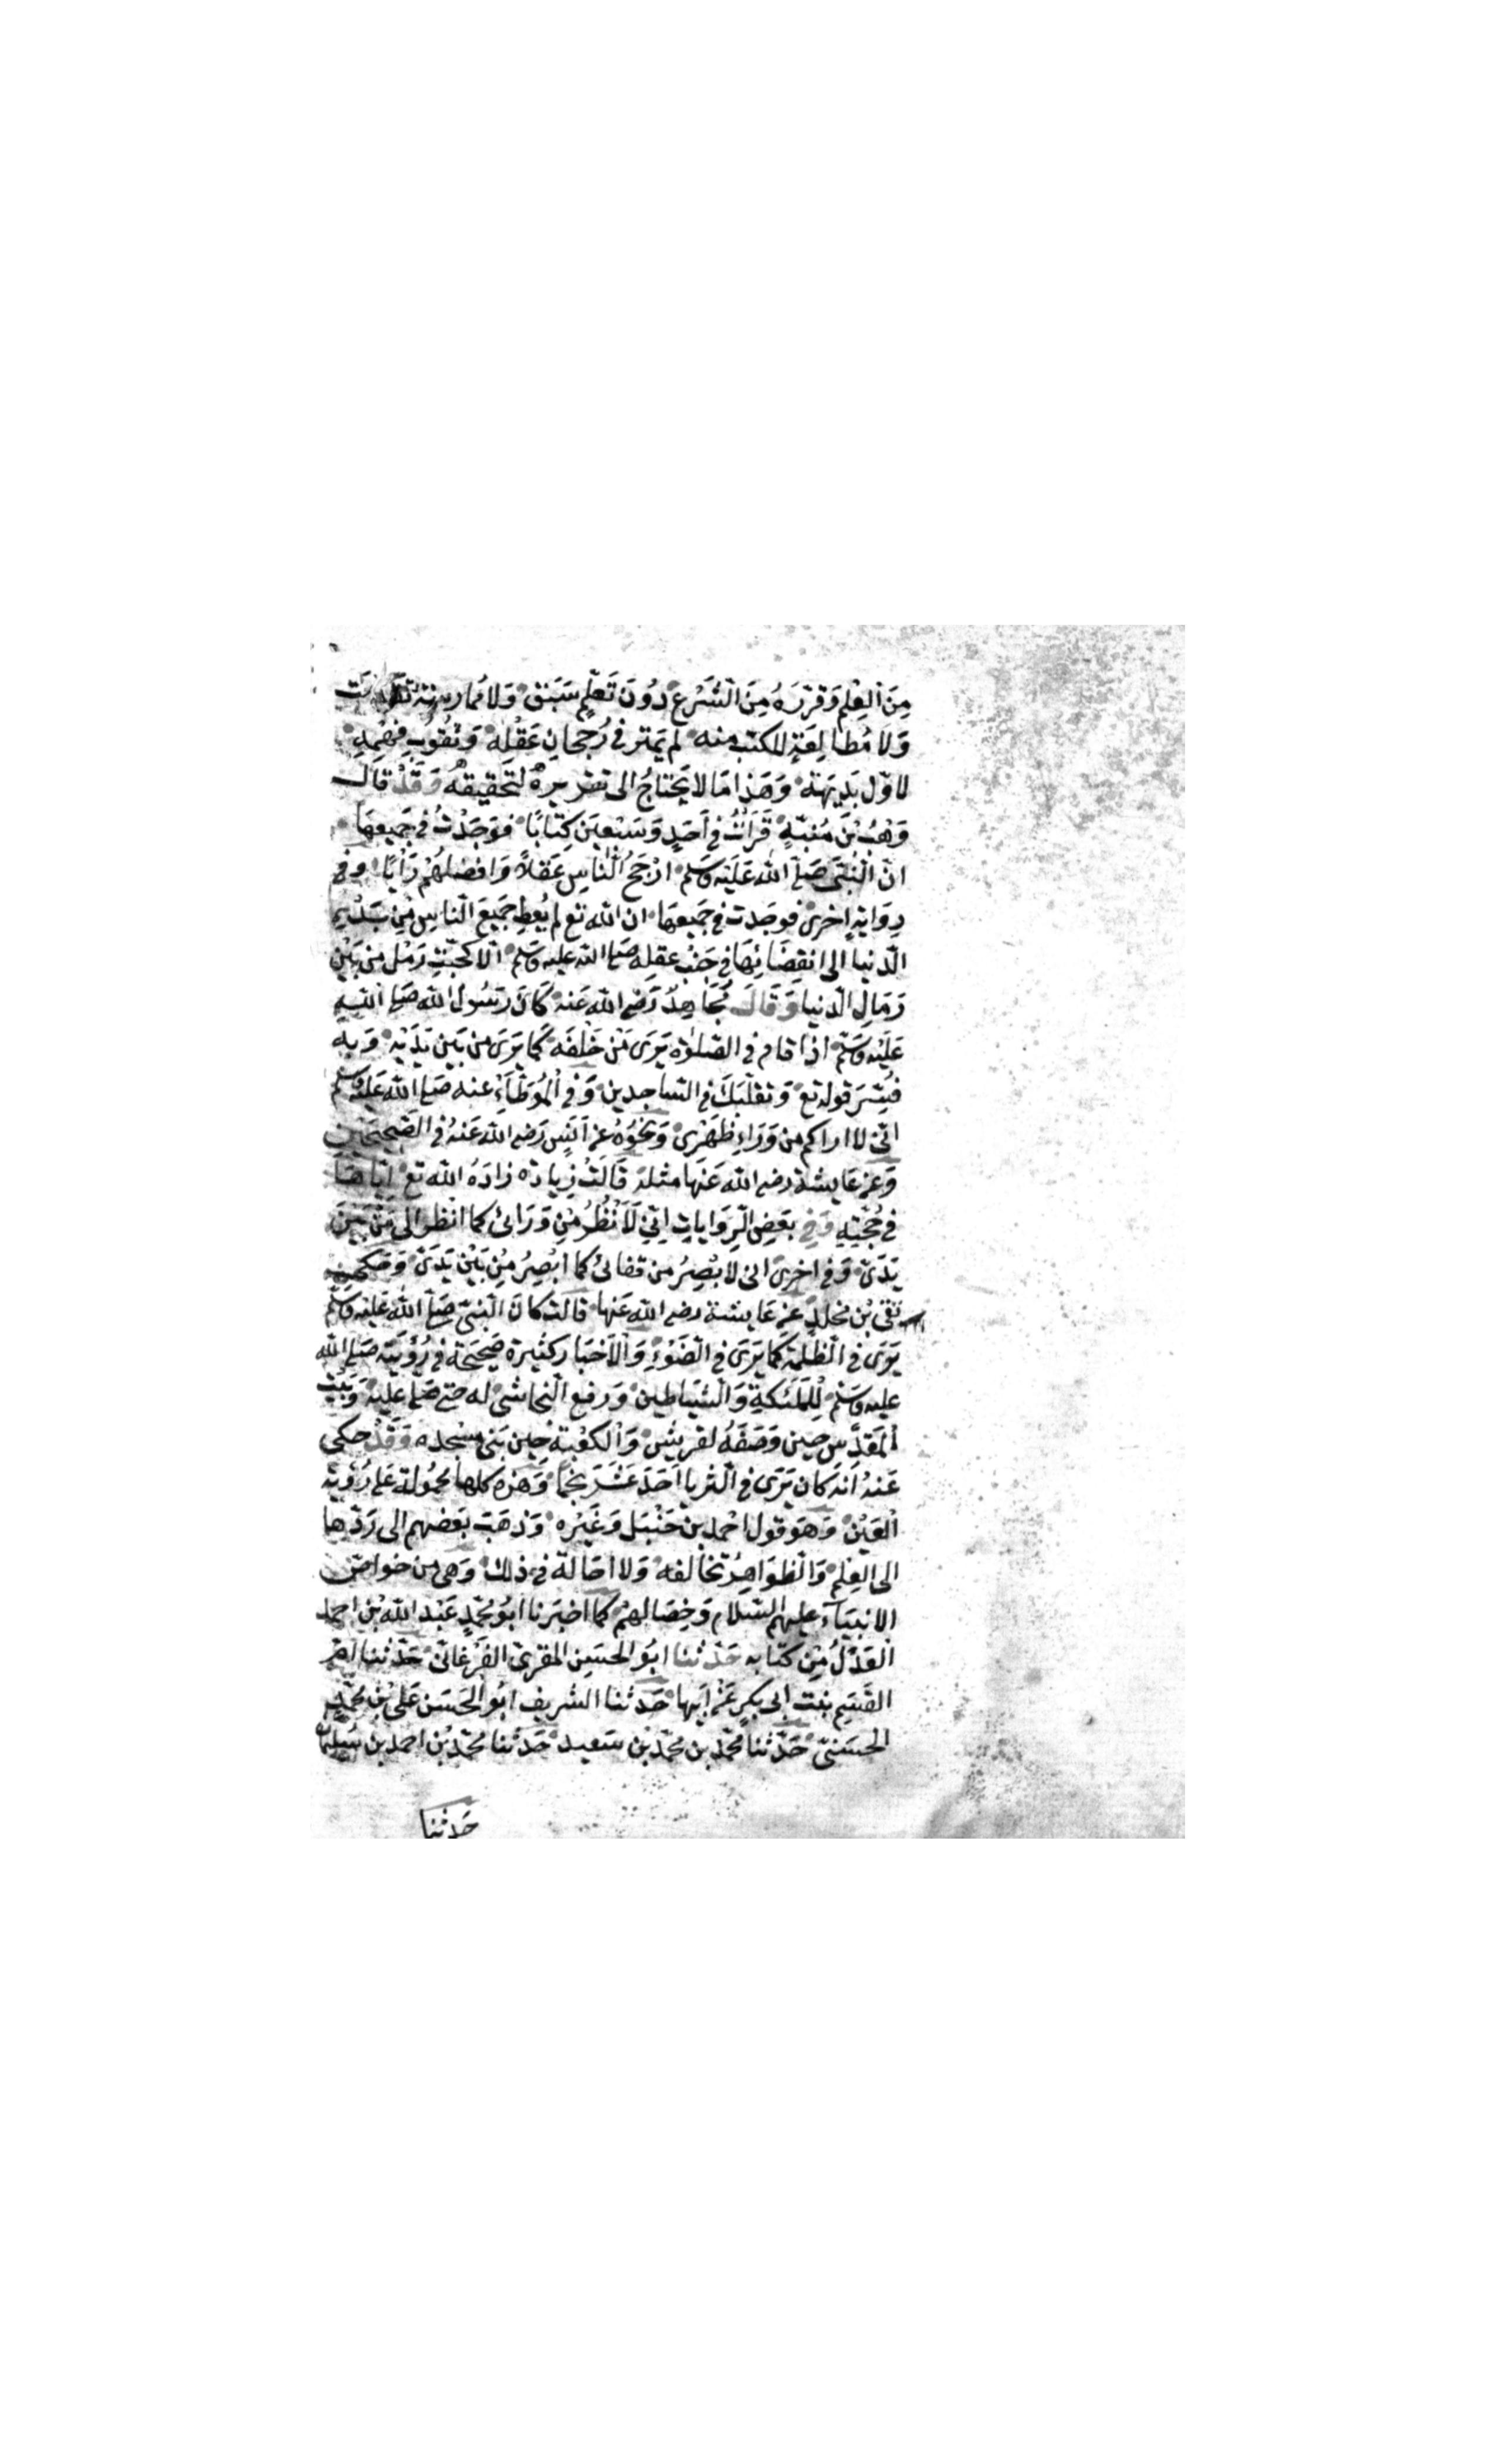 مِنَ الْعِلْمِ وَقَرَّرَهُ مِنَ الشَّرْعِ دُونَ تَعَلُّمٍ سَبَقَ وَلَا مُمَارَسَةٍ تَقَدَّمَتْ
وَلَا مُطَالَعَةٍ لِلكتب منه لم يَمْتَرِ في رُجحانِ عَقْلِهِ وَثُقُوبِ فَهْمِهِ
لاوّل بَدِيهَة وَهَذا مَا لا يَحْتاجُ الى تقريره لتحقيقه وَقَدْ قال
وَهْبُ بْنُ مُنَبِّهٍ قَرَأْتُ في أَحَدٍ وَسَبْعِينَ كِتَابًا فَوَجَدْتُ في جَمِيعِهَا
انّ النَّبىَّ صَلَّى الله عَلَيْه وَسَلَّم ارْجَحُ النَّاسِ عَقْلاً وَافضلهُمْ رَأْيًا وفى
رِوَايَةٍ اخرى فوجدت فى جميعهَا ان الله تع لم يُعْطِ جَمِيعَ النَّاسِ مِنْ بَدْءِ
الدّنيا الى انقِضَائِهَا في جَنْبِ عقلِهِ صَلَّى الله عليه وسَلم الّا كَحَبَّةِ رَمْلٍ من بَيْنِ
رِمَالِ الدّنيا وَقَالَ مُجَاهِدٌ رَضى الله عَنه كَانَ رَسُولُ الله صَلّى الله
عَلَيْهِ وَسَلَّم اذا قام فى الصَّلوٰة يَرَى مَنْ خَلْفَه كَما يَرَى من بَين يَدَيْهِ وَبِهِ
فُسِّرَ قوله تع وَتَقَلُّبَكَ فى السّاجِدِين وَفى الْمُوَطَّاءِ عنه صَلى الله عَليْهِ وَسَلم
انّى لااراكم من وَرَاءِ ظَهْرِى وَنَحْوُهُ عَنْ اَنَسٍ رَضى الله عَنْهُ فى الصَّحِيحَيْنِ
وَعن عَايشة رضى الله عَنهَا مثله قَالَتْ زيادة زادَهُ الله تع اياها
في حُجَّتِهِ وَفى بعَضِ الرِّوَاياتِ انِّى لَاَنْظُرُ مِنْ وَرَائى كما انظر الى مَنْ بَيْنَ
يَدَىَّ وَفى اخرى انى لَاُبْصِرُ من قفائى كما ابْصِرُ مِنْ بَيْن يَدَىَّ وَحَكى
بَقى بْنُ مخلدٍ عَن عَايشة رضى الله عَنها قالت كانَ النّبىّ صَلّى الله عَليه وَسَلّم
يَرَى فى الظلمة كَما يَرَى فى الضَّوْءِ وَالْاَخبَار كثيرة صَحِيحَة فى رُؤْيَته صَلى الله
عليه وَسَلّم لِلْمَلَئكةِ وَالشّيَاطين وَرفع النّجاشى له حتى صَلى عليه وَبَيْت
الْمَقْدِس حِين وَصَفَهُ لقريش وَالكَعْبَة حِين بَنى مسْجده وَقَدْ حكى
عَنهُ انهُ كان يَرَى فى الثريا احَدَ عَشَرَ نجما وَهذه كلها محمُولة عَلى رُؤْية
الْعَيْن وَهوَ قول احمد بن حَنْبَل وَغيْره وَذهَبَ بَعضهم الى رَدّها
الى العِلْم وَالظوَاهِرُ تخالفه وَلا احَالة فى ذلك وَهى من خواصّ
الانبيَاءِ عليهم السّلام وَخِصَالِهِمْ كما اخبَرنا ابُو مُحَمّدٍ عَبْد الله بْن احمد
العَدْلُ مِنْ كتابه حَدّثنا ابُو الحسَين المقرى الفَرْغَانىّ حَدّثتنا امّ
القسم بنت ابى بكرٍ عَنْ ابِيها حَدثنا الشريف ابُو الحَسَن عَلىّ بْن مُحَمّدٍ
الحسَنىّ حَدّثنا مُحَمّد بن مُحَمّد بْن سَعيد حَدّثنا مُحمّد بْن احمد بن سُلَيْمَانَ
حَدثنا